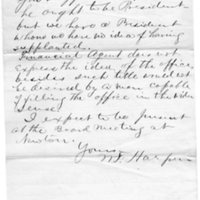 he ought to be President
but we have a President
whom we have no idea of having
supplanted.
Financial Agent does not
express the idea of the office,
besides such title would not
be desired by a man capable
of filling the office in the
sense.
I expect to be present
at the Board meeting at
Newton.
Yours
Harper